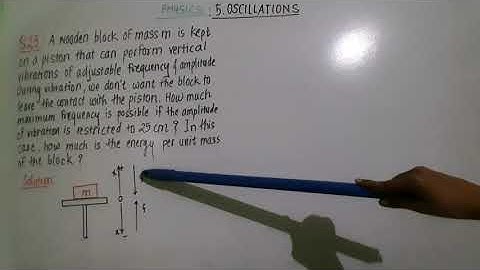 PHYSICS : 5. OSCILLATIONS
A wooden block of mass m is kept
on a piston that can perform vertical
vibrations of adjustable frequency & amplitude
during vibration, we don't want the block to
leave the contact with the piston. How much
maximum frequency is possible if the amplitude
of vibration is restricted to 25 cm? In this
case, how much is the energy per unit mass
of the block?
Solution
m